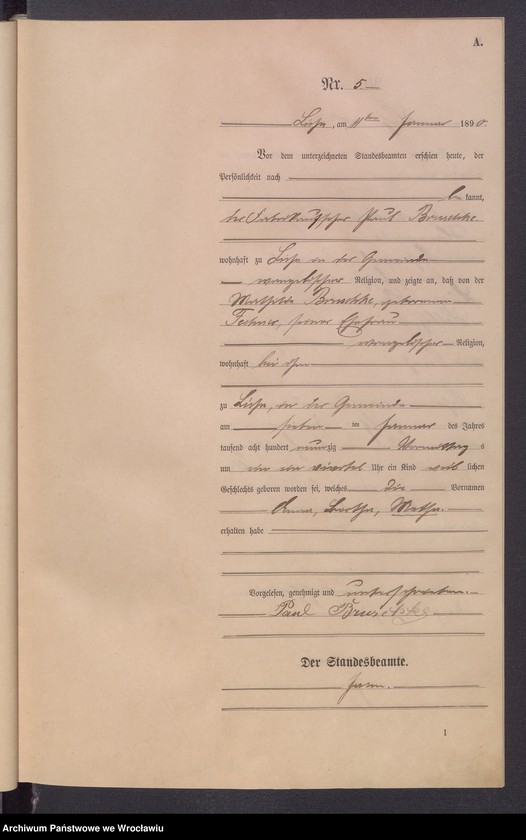 A.
Nr. 5
Lissa, am 11ten Januar 1890.
Vor dem unterzeichneten Standesbeamten erschien heute, der
Persönlichkeit nach
bekannt,
der Paul Bruschke
wohnhaft zu Lissa in der Gemeinde
evangelischer Religion, und zeigte an, daß von der
Mathilde Bruschke, geborenen
seiner Ehefrau
evangelischer Religion,
wohnhaft bei ihm
zu Lissa, in der Gemeinde
am sieben ten Januar des Jahres
tausend acht hundert neunzig Vormittag s
um ein viertel Uhr ein Kind weib lichen
Geschlechts geboren worden sei, welches die Vornamen
Anna, Bertha, Martha.
erhalten habe
Vorgelesen, genehmigt und unterschrieben.
Paul Bruschke
Der Standesbeamte.
1
Archiwum Państwowe we Wrocławiu